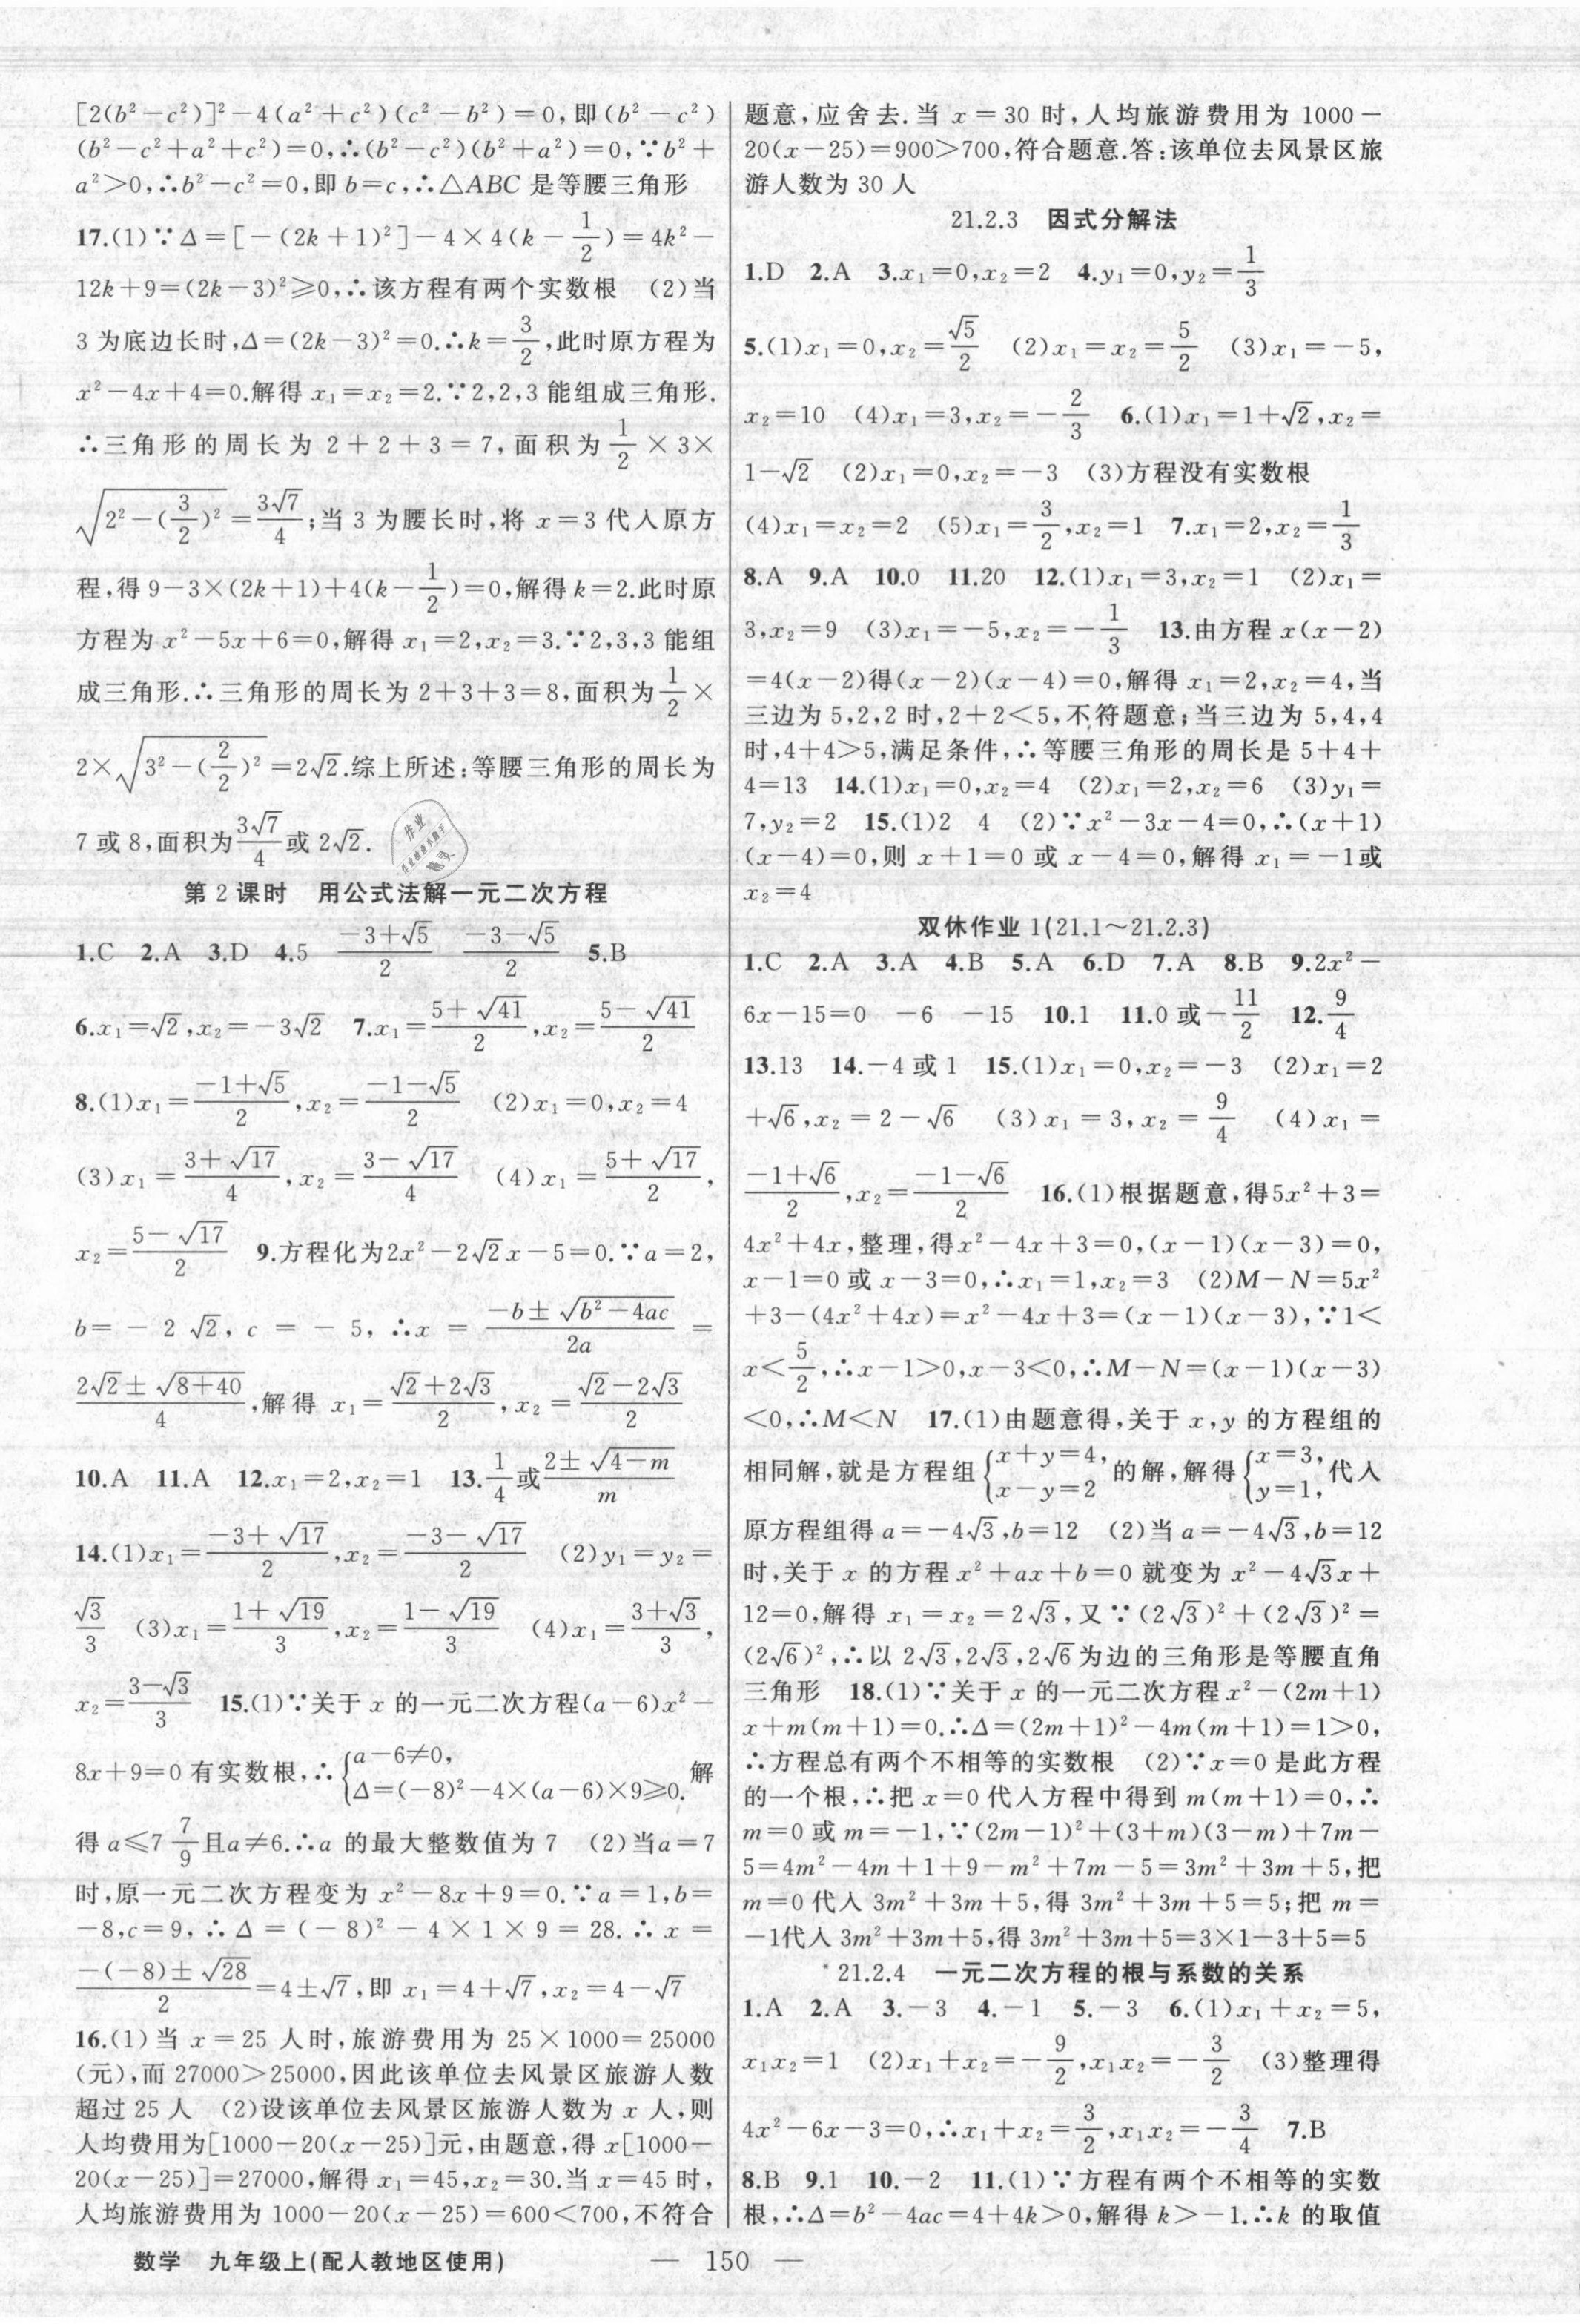 [2(b²－c²)]²－4(a²＋c²)(c²－b²)＝0,即(b²－c²)
(b²－c²＋a²＋c²)＝0,∴(b²－c²)(b²＋a²)＝0,∵b²＋
a²＞0,∴b²－c²＝0,即b＝c,∴△ABC是等腰三角形
17.(1)∵Δ＝[－(2k＋1)²]－4×4(k－1/2)＝4k²－
12k＋9＝(2k－3)²≥0,∴该方程有两个实数根 (2)当
3为底边长时,Δ＝(2k－3)²＝0.∴k＝3/2,此时原方程为
x²－4x＋4＝0.解得x₁＝x₂＝2.∵2,2,3能组成三角形.
∴三角形的周长为2＋2＋3＝7,面积为1/2×3×
√(2²－(3/2)²)＝3√7/4;当3为腰长时,将x＝3代入原方
程,得9－3×(2k＋1)＋4(k－1/2)＝0,解得k＝2.此时原
方程为x²－5x＋6＝0,解得x₁＝2,x₂＝3.∵2,3,3能组
成三角形.∴三角形的周长为2＋3＋3＝8,面积为1/2×
2×√(3²－(2/2)²)＝2√2.综上所述:等腰三角形的周长为
7或8,面积为3√7/4或2√2.
第2课时 用公式法解一元二次方程
1.C 2.A 3.D 4.5 (－3＋√5)/2 (－3－√5)/2 5.B
6.x₁＝√2,x₂＝－3√2 7.x₁＝(5＋√41)/2,x₂＝(5－√41)/2
8.(1)x₁＝(－1＋√5)/2,x₂＝(－1－√5)/2 (2)x₁＝0,x₂＝4
(3)x₁＝(3＋√17)/4,x₂＝(3－√17)/4 (4)x₁＝(5＋√17)/2,
x₂＝(5－√17)/2 9.方程化为2x²－2√2x－5＝0.∵a＝2,
b＝－2√2,c＝－5,∴x＝(－b±√(b²－4ac))/2a＝
(2√2±√(8＋40))/4,解得x₁＝(√2＋2√3)/2,x₂＝(√2－2√3)/2
10.A 11.A 12.x₁＝2,x₂＝1 13.1/4或(2±√(4－m))/m
14.(1)x₁＝(－3＋√17)/2,x₂＝(－3－√17)/2 (2)y₁＝y₂＝
√3/3 (3)x₁＝(1＋√19)/3,x₂＝(1－√19)/3 (4)x₁＝(3＋√3)/3,
x₂＝(3－√3)/3 15.(1)∵关于x的一元二次方程(a－6)x²－
8x＋9＝0有实数根,∴{a－6≠0, Δ＝(－8)²－4×(a－6)×9≥0. 解
得a≤7 7/9且a≠6.∴a的最大整数值为7 (2)当a＝7
时,原一元二次方程变为x²－8x＋9＝0.∵a＝1,b＝
－8,c＝9,∴Δ＝(－8)²－4×1×9＝28.∴x＝
(－(－8)±√28)/2＝4±√7,即x₁＝4＋√7,x₂＝4－√7
16.(1)当x＝25人时,旅游费用为25×1000＝25000
(元),而27000＞25000,因此该单位去风景区旅游人数
超过25人 (2)设该单位去风景区旅游人数为x人,则
人均费用为[1000－20(x－25)]元,由题意,得x[1000－
20(x－25)]＝27000,解得x₁＝45,x₂＝30.当x＝45时,
人均旅游费用为1000－20(x－25)＝600＜700,不符合
题意,应舍去.当x＝30时,人均旅游费用为1000－
20(x－25)＝900＞700,符合题意.答:该单位去风景区旅
游人数为30人
21.2.3 因式分解法
1.D 2.A 3.x₁＝0,x₂＝2 4.y₁＝0,y₂＝1/3
5.(1)x₁＝0,x₂＝√5/2 (2)x₁＝x₂＝5/2 (3)x₁＝－5,
x₂＝10 (4)x₁＝3,x₂＝－2/3 6.(1)x₁＝1＋√2,x₂＝
1－√2 (2)x₁＝0,x₂＝－3 (3)方程没有实数根
(4)x₁＝x₂＝2 (5)x₁＝3/2,x₂＝1 7.x₁＝2,x₂＝1/3
8.A 9.A 10.0 11.20 12.(1)x₁＝3,x₂＝1 (2)x₁＝
3,x₂＝9 (3)x₁＝－5,x₂＝－1/3 13.由方程x(x－2)
＝4(x－2)得(x－2)(x－4)＝0,解得x₁＝2,x₂＝4,当
三边为5,2,2时,2＋2＜5,不符题意;当三边为5,4,4
时,4＋4＞5,满足条件,∴等腰三角形的周长是5＋4＋
4＝13 14.(1)x₁＝0,x₂＝4 (2)x₁＝2,x₂＝6 (3)y₁＝
7,y₂＝2 15.(1)2 4 (2)∵x²－3x－4＝0,∴(x＋1)
(x－4)＝0,则x＋1＝0或x－4＝0,解得x₁＝－1或
x₂＝4
双休作业1(21.1～21.2.3)
1.C 2.A 3.A 4.B 5.A 6.D 7.A 8.B 9.2x²－
6x－15＝0 －6 －15 10.1 11.0或－11/2 12.9/4
13.13 14.－4或1 15.(1)x₁＝0,x₂＝－3 (2)x₁＝2
＋√6,x₂＝2－√6 (3)x₁＝3,x₂＝9/4 (4)x₁＝
(－1＋√6)/2,x₂＝(－1－√6)/2 16.(1)根据题意,得5x²＋3＝
4x²＋4x,整理,得x²－4x＋3＝0,(x－1)(x－3)＝0,
x－1＝0或x－3＝0,∴x₁＝1,x₂＝3 (2)M－N＝5x²
＋3－(4x²＋4x)＝x²－4x＋3＝(x－1)(x－3),∵1＜
x＜5/2,∴x－1＞0,x－3＜0,∴M－N＝(x－1)(x－3)
＜0,∴M＜N 17.(1)由题意得,关于x,y的方程组的
相同解,就是方程组{x＋y＝4, x－y＝2的解,解得{x＝3, y＝1,代入
原方程组得a＝－4√3,b＝12 (2)当a＝－4√3,b＝12
时,关于x的方程x²＋ax＋b＝0就变为x²－4√3x＋
12＝0,解得x₁＝x₂＝2√3,又∵(2√3)²＋(2√3)²＝
(2√6)²,∴以2√3,2√3,2√6为边的三角形是等腰直角
三角形 18.(1)∵关于x的一元二次方程x²－(2m＋1)
x＋m(m＋1)＝0.∴Δ＝(2m＋1)²－4m(m＋1)＝1＞0,
∴方程总有两个不相等的实数根 (2)∵x＝0是此方程
的一个根,∴把x＝0代入方程中得到m(m＋1)＝0,∴
m＝0或m＝－1,∵(2m－1)²＋(3＋m)(3－m)＋7m－
5＝4m²－4m＋1＋9－m²＋7m－5＝3m²＋3m＋5,把
m＝0代入3m²＋3m＋5,得3m²＋3m＋5＝5;把m＝
－1代入3m²＋3m＋5,得3m²＋3m＋5＝3×1－3＋5＝5
*21.2.4 一元二次方程的根与系数的关系
1.A 2.A 3.－3 4.－1 5.－3 6.(1)x₁＋x₂＝5,
x₁x₂＝1 (2)x₁＋x₂＝－9/2,x₁x₂＝－3/2 (3)整理得
4x²－6x－3＝0,∴x₁＋x₂＝3/2,x₁x₂＝－3/4 7.B
8.B 9.1 10.－2 11.(1)∵方程有两个不相等的实数
根,∴Δ＝b²－4ac＝4＋4k＞0,解得k＞－1.∴k的取值
数学 九年级上(配人教地区使用) — 150 —
作业